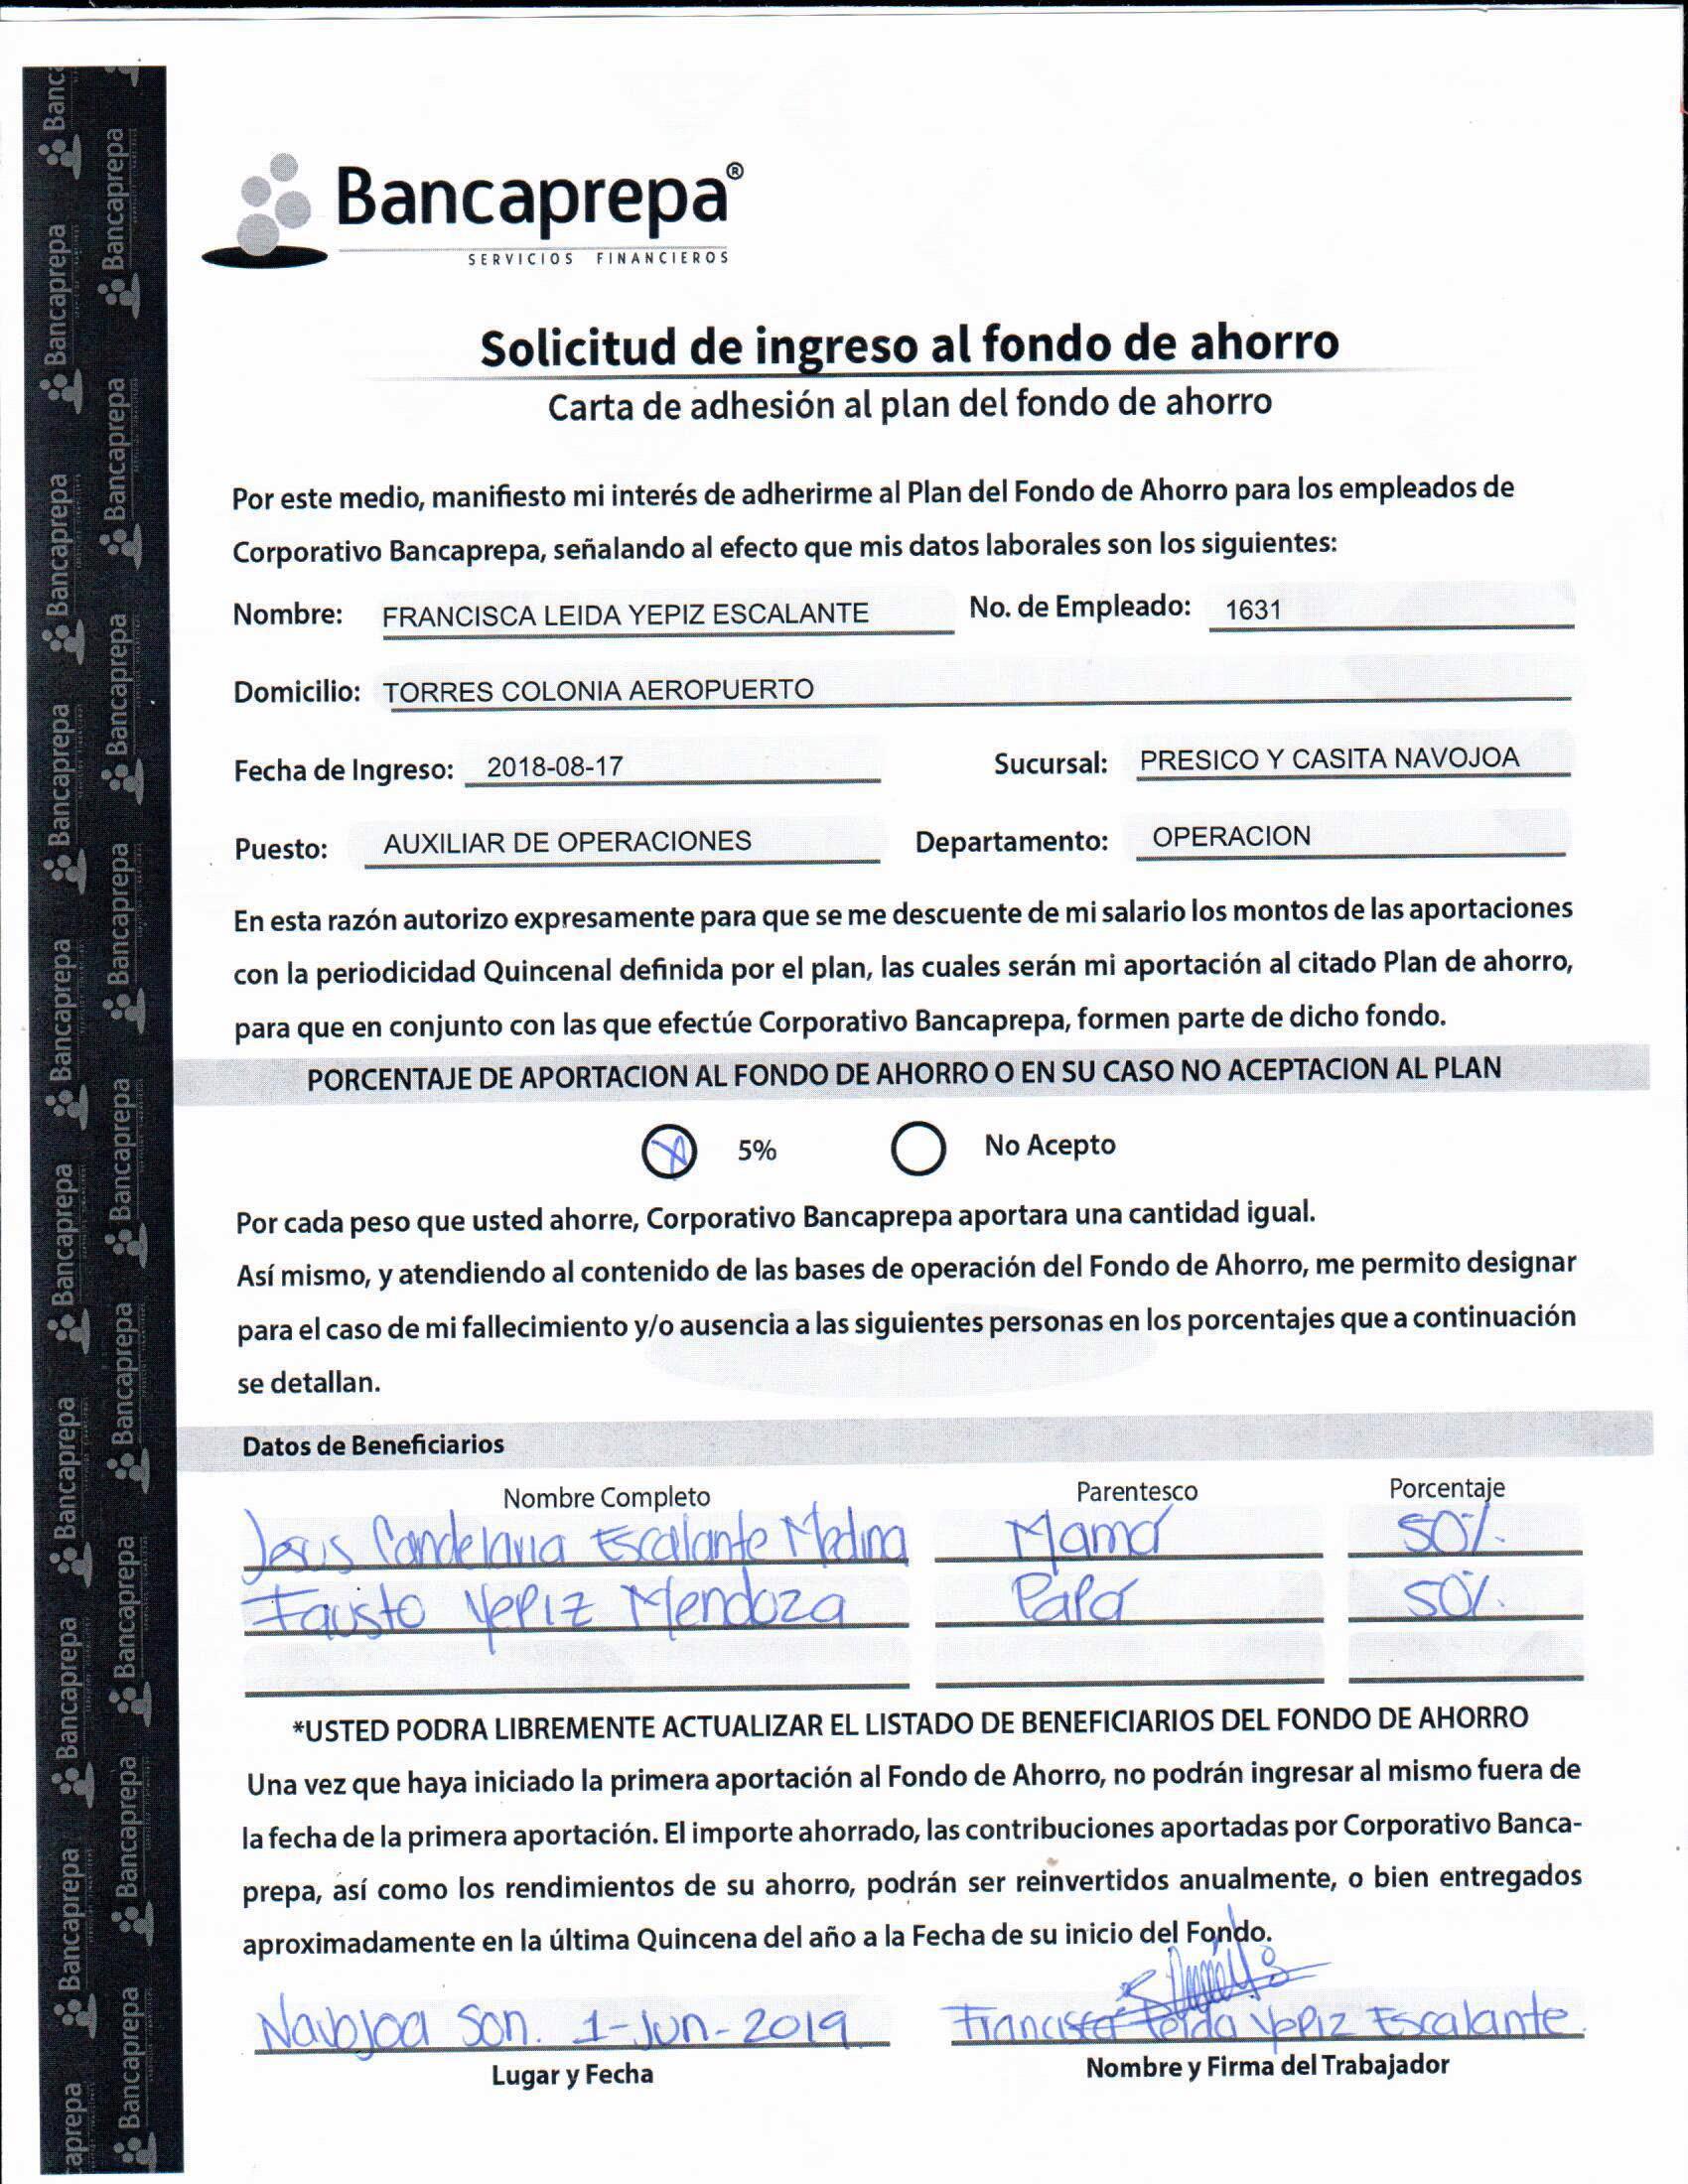 Bancaprepa®
SERVICIOS FINANCIEROS
Solicitud de ingreso al fondo de ahorro
Carta de adhesión al plan del fondo de ahorro
Por este medio, manifiesto mi interés de adherirme al Plan del Fondo de Ahorro para los empleados de
Corporativo Bancaprepa, señalando al efecto que mis datos laborales son los siguientes:
Nombre: FRANCISCA LEIDA YEPIZ ESCALANTE No. de Empleado: 1631
Domicilio: TORRES COLONIA AEROPUERTO
Fecha de Ingreso: 2018-08-17 Sucursal: PRESICO Y CASITA NAVOJOA
Puesto: AUXILIAR DE OPERACIONES Departamento: OPERACION
En esta razón autorizo expresamente para que se me descuente de mi salario los montos de las aportaciones
con la periodicidad Quincenal definida por el plan, las cuales serán mi aportación al citado Plan de ahorro,
para que en conjunto con las que efectúe Corporativo Bancaprepa, formen parte de dicho fondo.
PORCENTAJE DE APORTACION AL FONDO DE AHORRO O EN SU CASO NO ACEPTACION AL PLAN
X 5% No Acepto
Por cada peso que usted ahorre, Corporativo Bancaprepa aportara una cantidad igual.
Así mismo, y atendiendo al contenido de las bases de operación del Fondo de Ahorro, me permito designar
para el caso de mi fallecimiento y/o ausencia a las siguientes personas en los porcentajes que a continuación
se detallan.
Datos de Beneficiarios
Nombre Completo Parentesco Porcentaje
Jesus Candelaria Escalante Medina Mamá 50%
Fausto Yepiz Mendoza Papá 50%
*USTED PODRA LIBREMENTE ACTUALIZAR EL LISTADO DE BENEFICIARIOS DEL FONDO DE AHORRO
Una vez que haya iniciado la primera aportación al Fondo de Ahorro, no podrán ingresar al mismo fuera de
la fecha de la primera aportación. El importe ahorrado, las contribuciones aportadas por Corporativo Banca-
prepa, así como los rendimientos de su ahorro, podrán ser reinvertidos anualmente, o bien entregados
aproximadamente en la última Quincena del año a la Fecha de su inicio del Fondo.
Navojoa Son. 1-Jun-2019 Francisca Leida Yepiz Escalante.
Lugar y Fecha Nombre y Firma del Trabajador